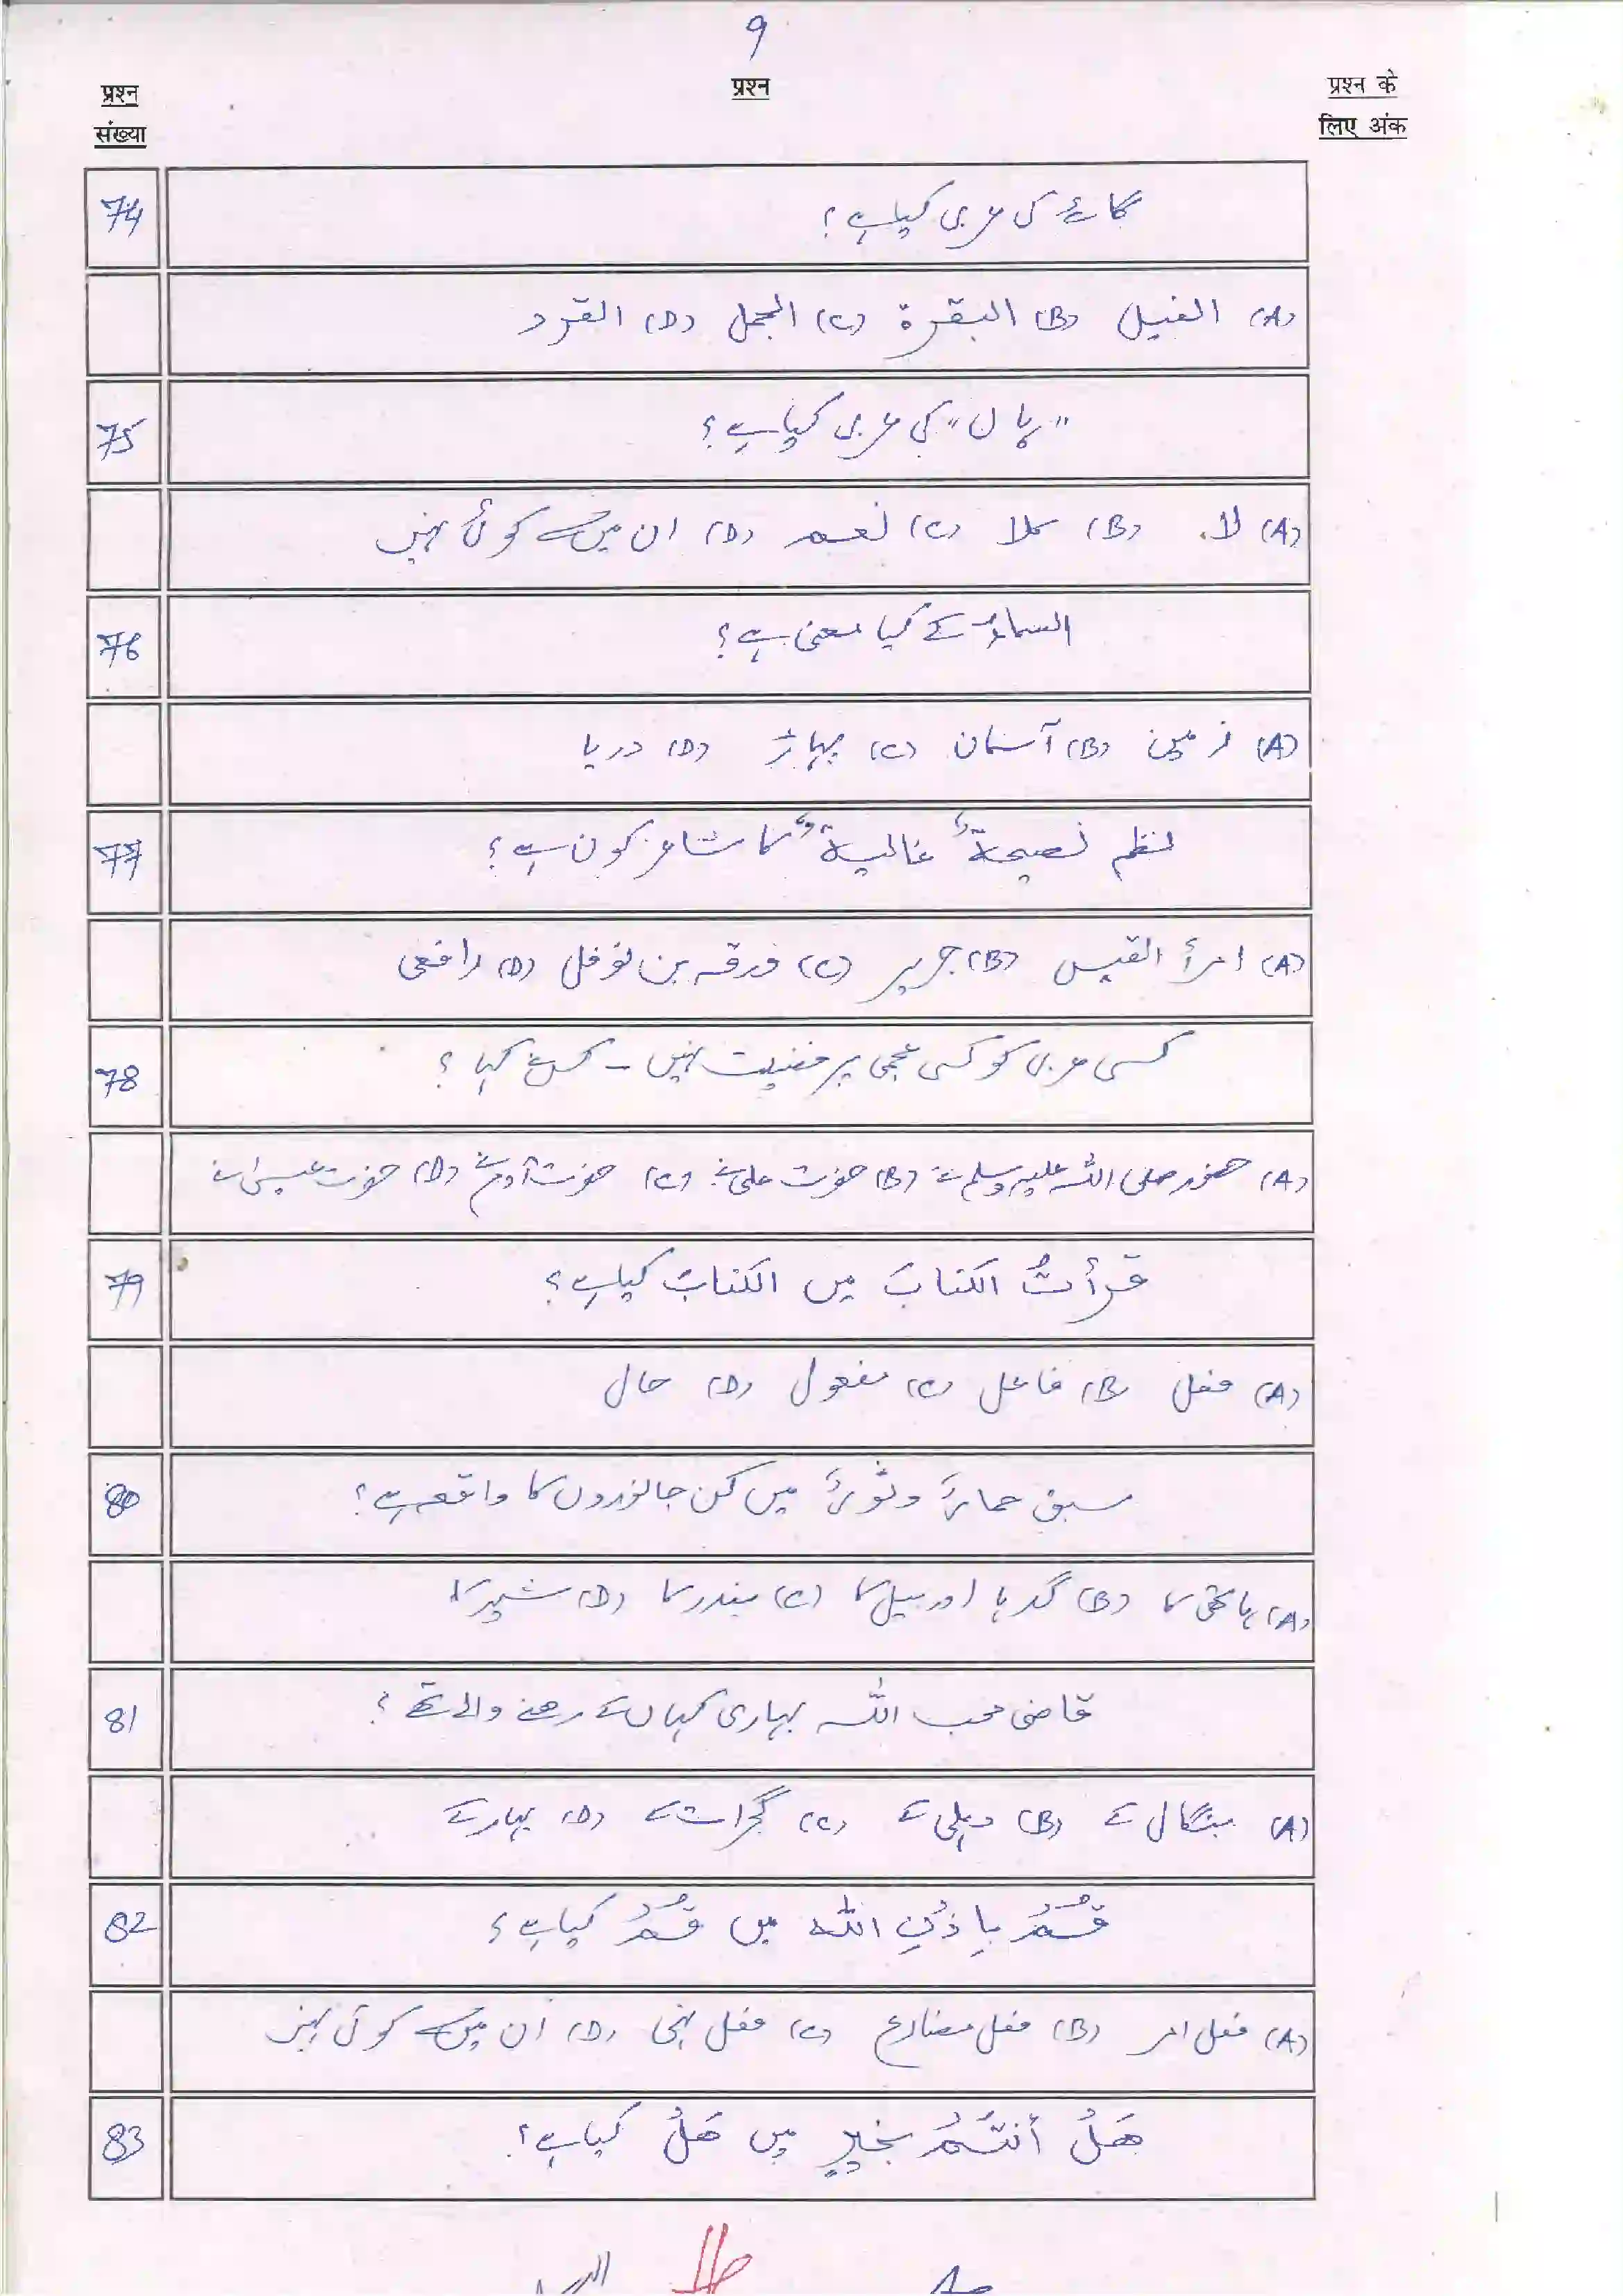 9
प्रश्न संख्या
प्रश्न
प्रश्न के लिए अंक
74
گائے کی عربی کیا ہے؟
(A) الفیل (B) البقرة (C) الجمل (D) القرد
75
"ہاں" کی عربی کیا ہے؟
(A) لا (B) کلا (C) نعم (D) ان میں سے کوئی نہیں
76
السماءُ کے کیا معنی ہے؟
(A) زمین (B) آسمان (C) پہاڑ (D) دریا
77
نظم نصیحةٌ غالیةٌ کا شاعر کون ہے؟
(A) امرأ القیس (B) جریر (C) ورقہ بن نوفل (D) رافعی
78
کسی عربی کو کسی عجمی پر فضیلت نہیں - کس نے کہا؟
(A) حضور صلی اللہ علیہ وسلم نے (B) حضرت علیؓ نے (C) حضرت آدمؑ نے (D) حضرت عیسیٰ نے
79
قرأتُ الکتابَ میں الکتابَ کیا ہے؟
(A) فعل (B) فاعل (C) مفعول (D) حال
80
سبق حمارٌ و ثورٌ میں کن جانوروں کا واقعہ ہے؟
(A) ہاتھی کا (B) گدہا اور بیل کا (C) بندر کا (D) شیر کا
81
قاضی محب اللہ بہاری کہاں کے رہنے والے تھے؟
(A) بنگال کے (B) دہلی کے (C) گجرات کے (D) بہار کے
82
قُمْ بِاِذْنِ اللہ میں قُمْ کیا ہے؟
(A) فعل امر (B) فعل مضارع (C) فعل نہی (D) ان میں سے کوئی نہیں
83
هَلْ أنتُمْ بخیرٍ میں هَلْ کیا ہے؟